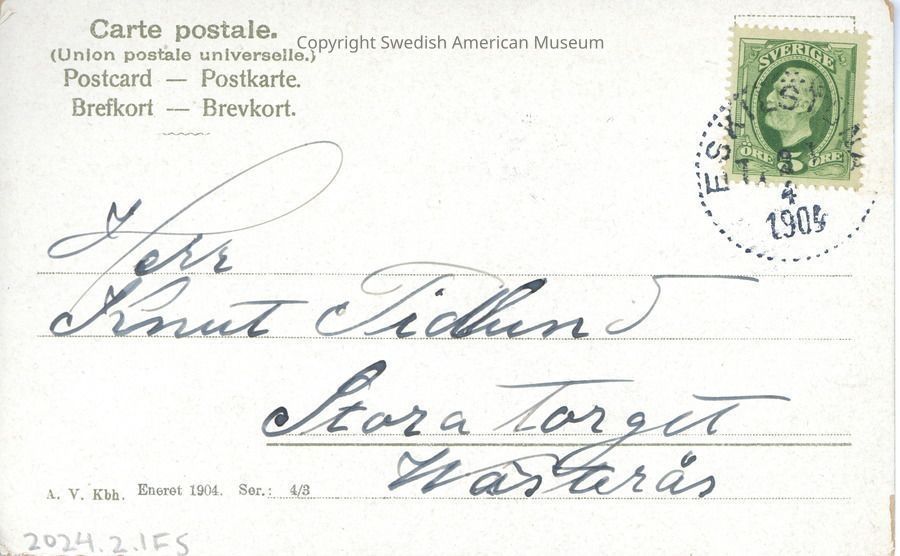 Carte postale.
(Union postale universelle.)
Postcard — Postkarte.
Brefkort — Brevkort.
Copyright Swedish American Museum
SVERIGE
ÖRE 5 ÖRE
ESKILSTUNA
4
1904
Herr
Knut Tidlund
Stora Torget
Wästerås
A. V. Kbh. Eneret 1904. Ser.: 4/3
2024.2.1FS